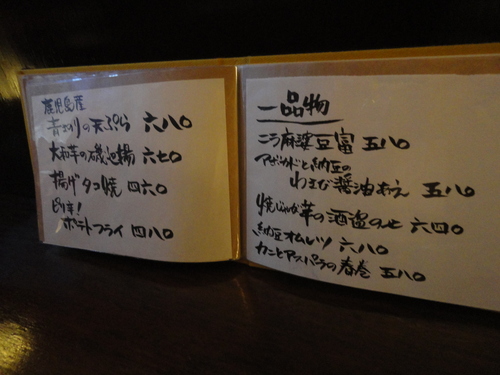 鹿児島産
青さのりの天ぷら 六八〇
大和芋の磯辺揚 六七〇
揚げタコ焼 四六〇
ピリ辛!
ポテトフライ 四八〇
一品物
ニラ麻婆豆富 五八〇
アボカドと納豆の
わさび醤油あえ 五八〇
焼じゃが芋の酒盗のせ 六四〇
納豆オムレツ 六八〇
カニとアスパラの春巻 五八〇